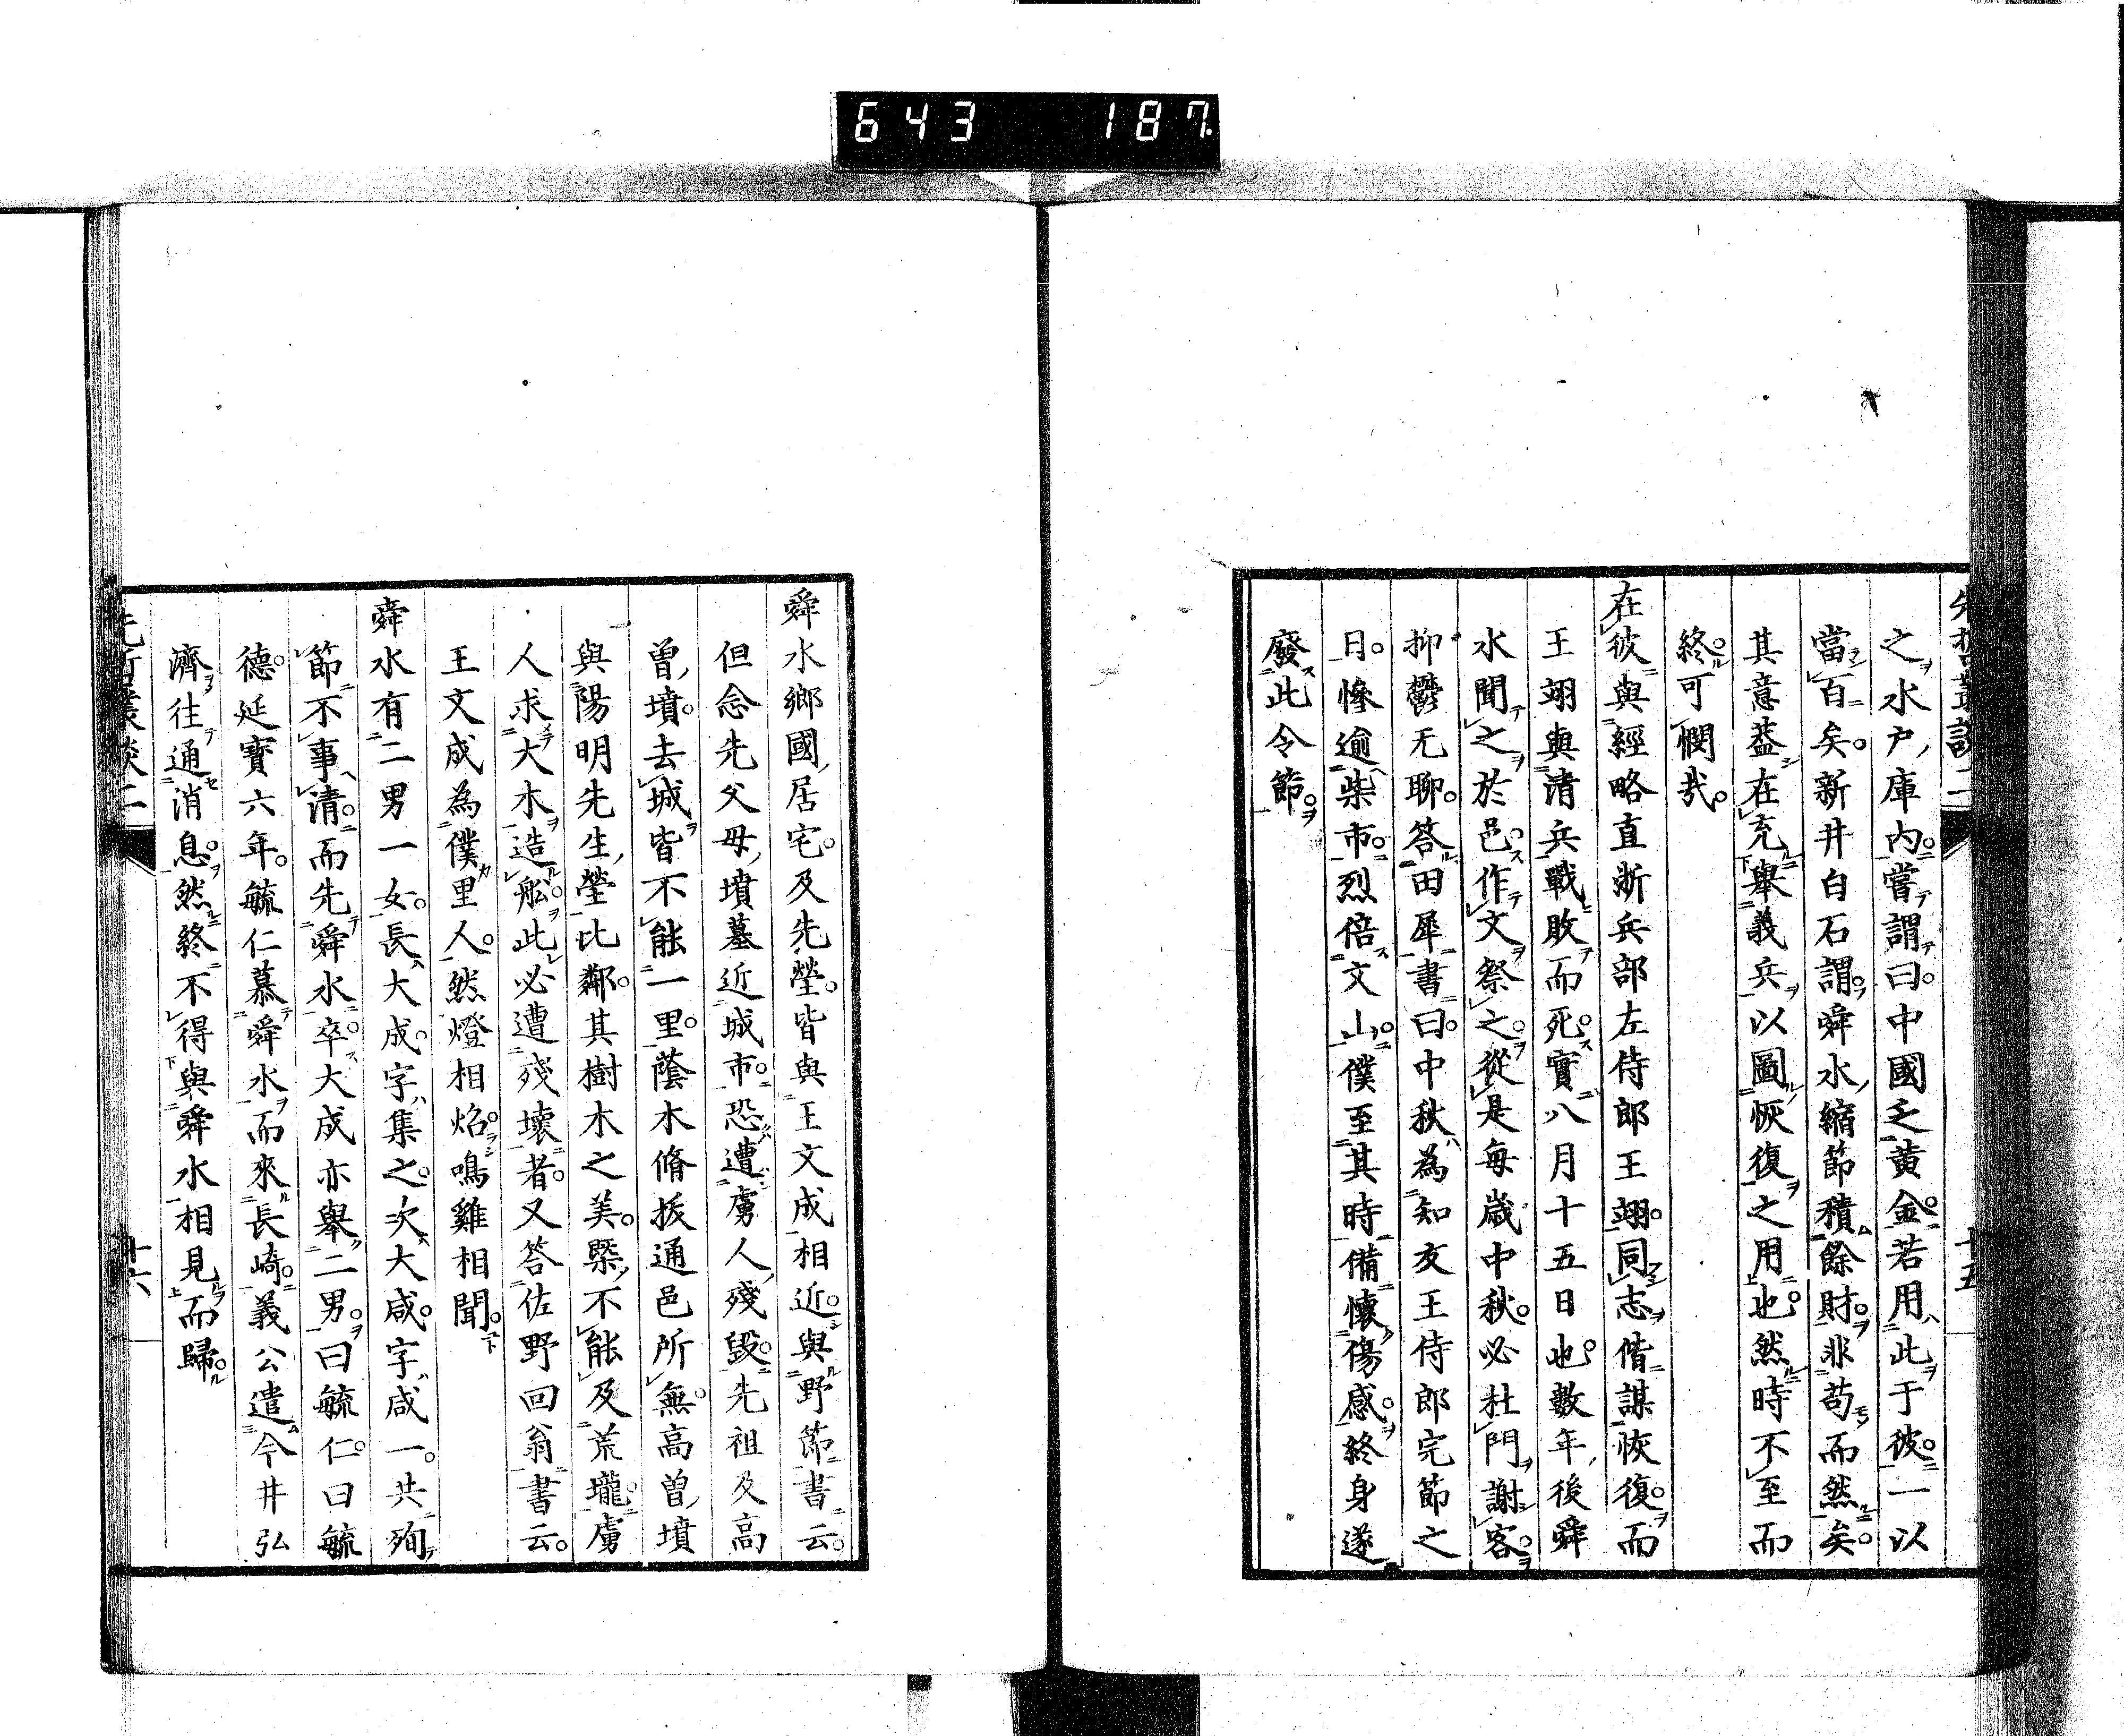 643 187
先哲叢談二 十五
之水戸庫內嘗謂曰中國乏黃金若用此于彼一以
當百矣新井白石謂舜水縮節積餘財非苟而然矣
其意葢在充舉義兵以圖恢復之用也然時不至而
終可憫哉
在彼與經略直浙兵部左侍郎王翊同志偕謀恢復而
王翊與清兵戰敗而死實八月十五日也數年後舜
水聞之於邑作文祭之從是每歲中秋必杜門謝客
抑鬱无聊答田犀書曰中秋為知友王侍郎完節之
日慘逾柴市烈倍文山僕至其時備懷傷感終身遂
廢此令節
舜水鄉國居宅及先塋皆與王文成相近與野節書云
但念先父母墳墓近城市恐遭虜人殘毀先祖及高
曾墳去城皆不能一里蔭木脩拔通邑所無高曾墳
與陽明先生塋比鄰其樹木之美槩不能及荒壠虜
人求大木造舩此必遭殘壞者又答佐野回翁書云
王文成為僕里人然燈相焰鳴雞相聞
舜水有二男一女長大成字集之次大咸字咸一共殉
節不事清而先舜水卒大成亦舉二男曰毓仁曰毓
德延寶六年毓仁慕舜水而來長崎義公遣今井弘
濟往通消息然終不得與舜水相見而歸
先哲叢談二 十六